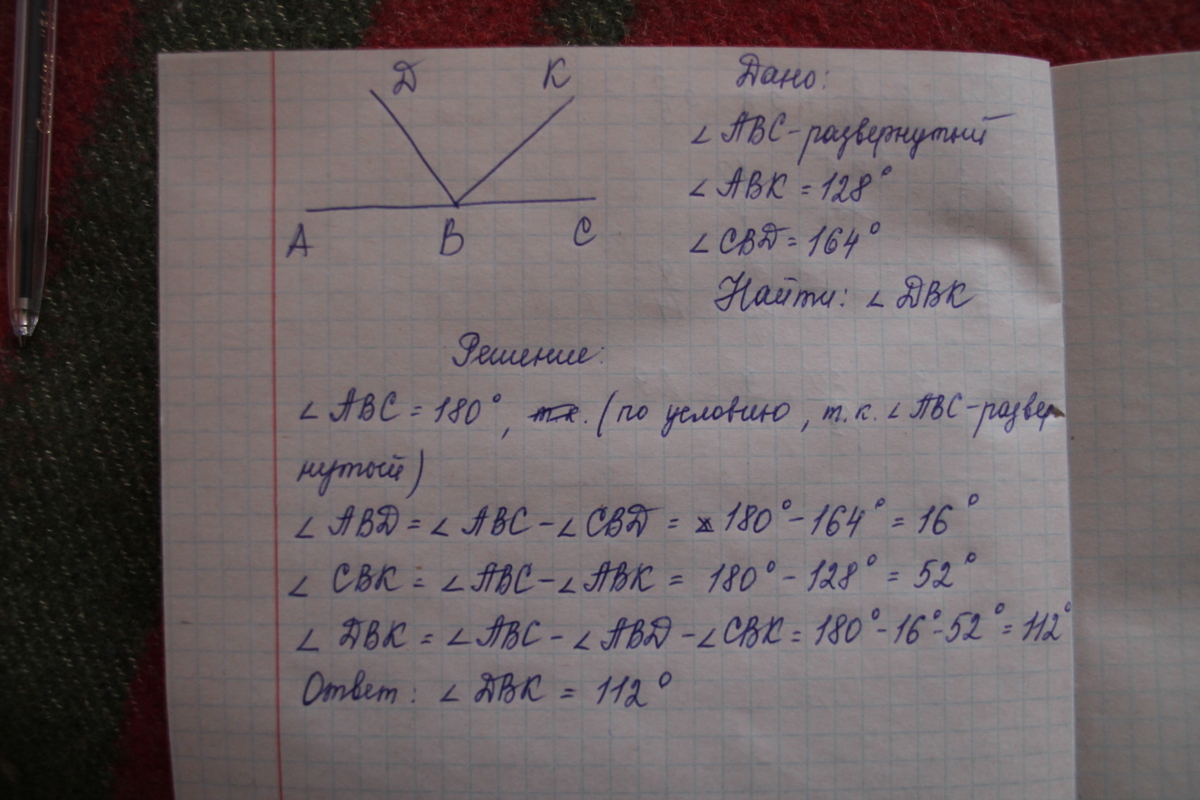 D K
A B C
Дано:
∠ ABC - развернутый
∠ ABK = 128°
∠ CBD = 164°
Найти: ∠ DBK
Решение:
∠ ABC = 180°, т.к. (по условию, т.к. ∠ ABC - развер
нутый)
∠ ABD = ∠ ABC - ∠ CBD = 180° - 164° = 16°
∠ CBK = ∠ ABC - ∠ ABK = 180° - 128° = 52°
∠ DBK = ∠ ABC - ∠ ABD - ∠ CBK = 180° - 16° - 52° = 112°
Ответ: ∠ DBK = 112°